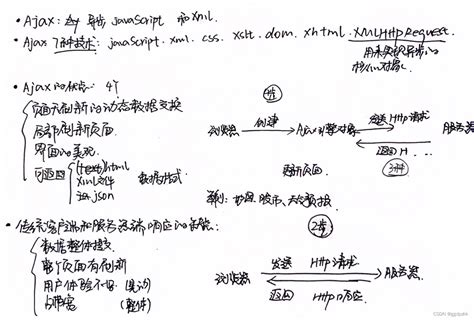 Ajax: 异步 javaScript 和 xml.
Ajax 7种技术: javaScript. xml. css. xslt. dom. xhtml. XMLHttpRequest.
用来实现异步的
核心对象.
Ajax的优点: 4个
页面无刷新的动态数据交换
局部刷新页面.
界面的美观
可返回 (text)html
xml文件
json
数据格式
浏览器 创建 Ajax引擎对象 发送 Http请求 服务器
返回 H...
更新页面.
举例: 股市、天气预报
传统客户端和服务器端响应的
数据整体提交
整个页面有刷新
用户体验不好
(整体)
浏览器 发送 Http请求 服务器
返回 Http响应